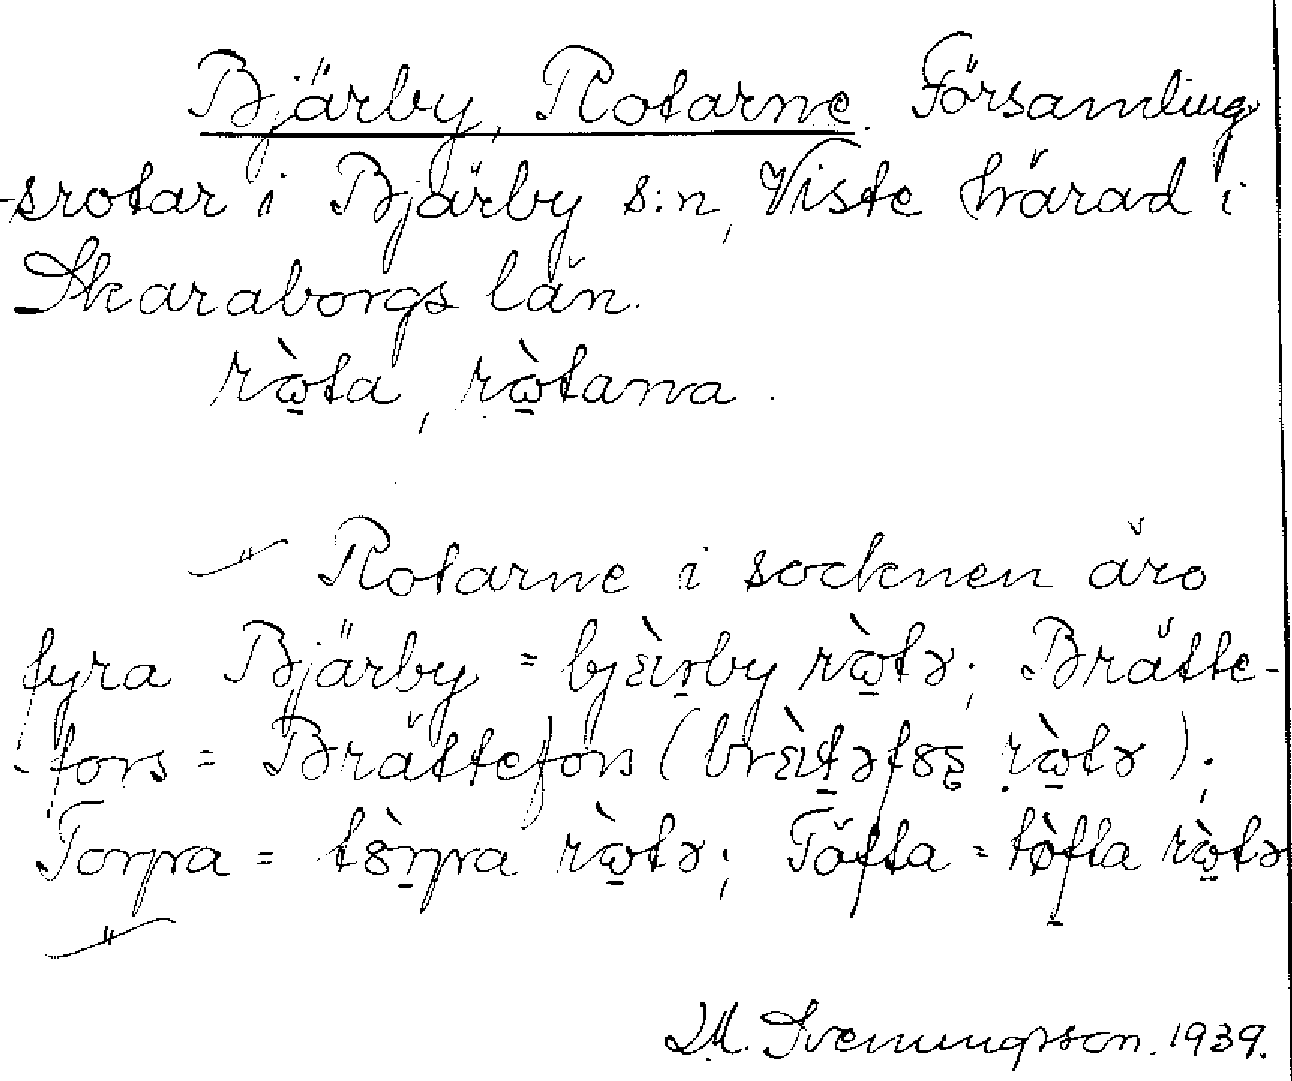 Bjärby, Rotarne. Församling
-srotar i Bjärby s:n, Viste härad i
Skaraborgs län.
rὼ̱ta, rὼ̱tana.
Rotarne i socknen äro
fyra Bjärby = bjɛ̀ɪṟby rὼ̱tə; Brätte-
fors = Brättefors (brɛ̀ɪṯəfȣʂ rὼ̱tə);
Torpa = tȣ̀ṟpa rὼ̱tə; Töfta = tø̱̀fta rὼ̱tə
Svenungsson. 1939.